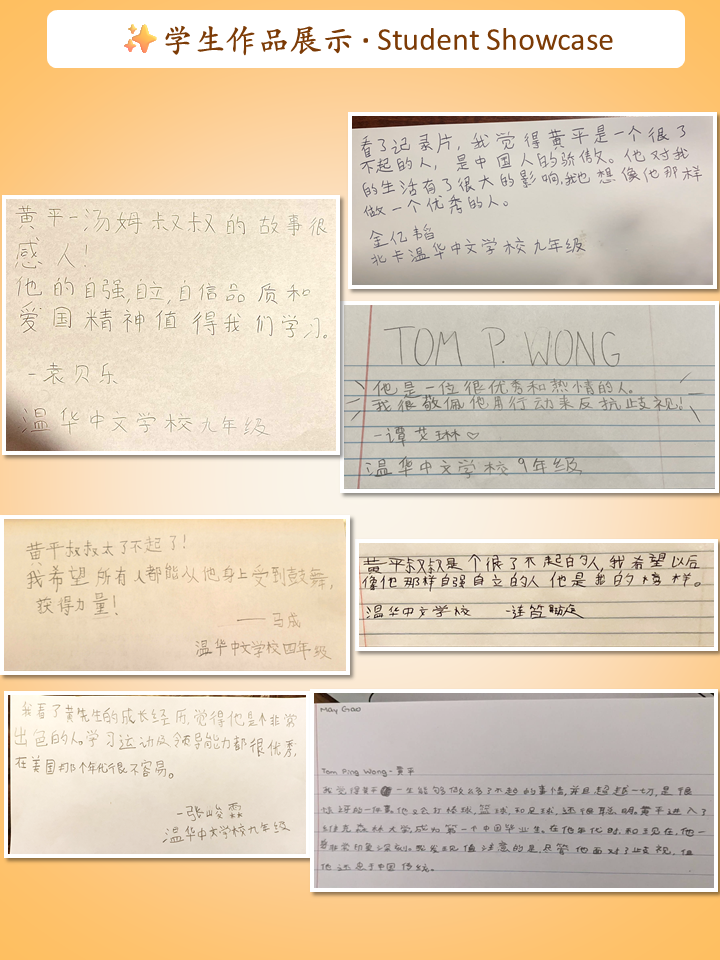 ✨学生作品展示·Student Showcase
看了记录片，我觉得黄平是一个很了
不起的人，是中国人的骄傲。他对我
的生活有了很大的影响，我也想像他那样
做一个优秀的人。
金亿韬
北卡温华中文学校九年级
黄平-汤姆叔叔的故事很
感人！
他的自强,自立,自信品质和
爱国精神值得我们学习。
-袁贝乐
温华中文学校九年级
TOM P. WONG
他是一位很优秀和热情的人。
我很敬佩他用行动来反抗歧视！
-谭艾琳♡
温华中文学校9年级
黄平叔叔太了不起了！
我希望所有人都能从他身上受到鼓舞，
获得力量！
——马成
温华中文学校四年级
黄平叔叔是个很了不起的人,我希望以后
像他那样自强自立的人 他是我的榜样。
温华中文学校
我看了黄先生的成长经历,觉得他是个非常
出色的人。学习运动及领导能力都很优秀,
在美国那个年代很不容易。
-张峻霖
温华中文学校九年级
May Gao
Tom Ping Wong - 黄平
我觉得黄平一生能够做这多了不起的事情，并且超越一切，是很
的一件事。他又会打棒球，篮球，和足球，还很聪明。黄平进入了
维克森林大学成为第一个中国毕业生。在他年代时，和现在，他一
的是，尽管他面对了歧视，但
他还忠于中国传统。